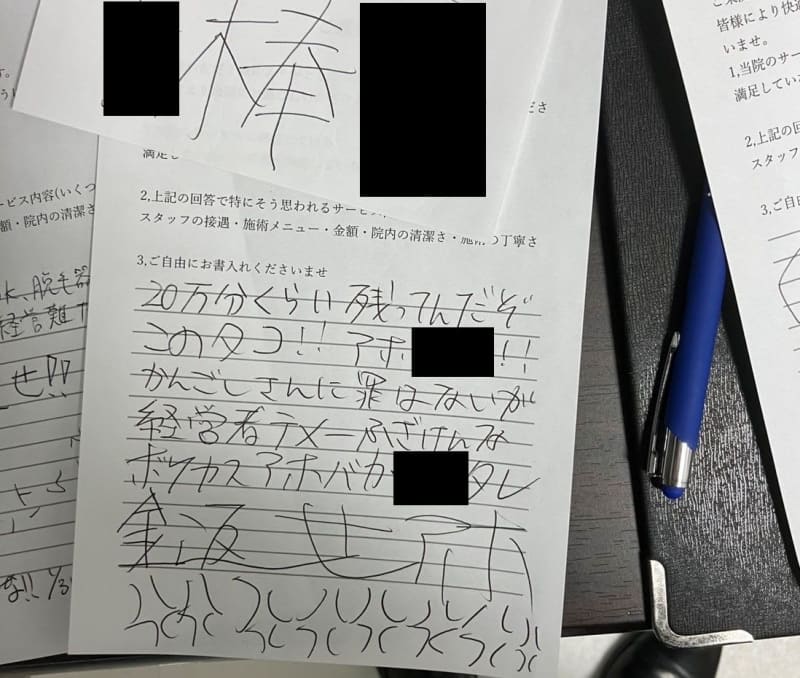 棒
ださ
満足し
2,上記の回答で特にそう思われるサービス
スタッフの接遇・施術メニュー・金額・院内の清潔さ・施術の丁寧さ
3,ご自由にお書入れくださいませ
20万分くらい残ってんだぞ
このタコ!! アホ !!
かんごしさんに罪はないが
経営者テメーふざけんな
ボケカスアホバカ タレ
金返せ
す。
ービス内容(いくつ
額・院内の清潔さ
脱毛器
経営難
せ!!
な!!
皆様により快適
いませ。
1,当院のサー
満足してい
2,上記の回
スタッフ
3,ご自由